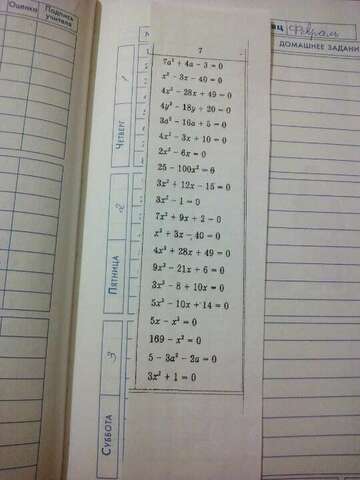 Оценки
Подпись учителя
Четверг
1
Пятница
2
Суббота
3
7
7a² + 4a − 3 = 0
x² − 3x − 40 = 0
4x² − 28x + 49 = 0
4y² − 18y + 20 = 0
3a² − 16a + 5 = 0
4x² − 3x + 10 = 0
2x² − 6x = 0
25 − 100x² = 0
3x² + 12x − 15 = 0
3x² − 1 = 0
7x² + 9x + 2 = 0
x² + 3x − 40 = 0
4x² + 28x + 49 = 0
9x² − 21x + 6 = 0
3x² − 8 + 10x = 0
5x² − 10x + 14 = 0
5x − x² = 0
169 − x² = 0
5 − 3a² − 2a = 0
3x² + 1 = 0
Февраль
Домашнее задани